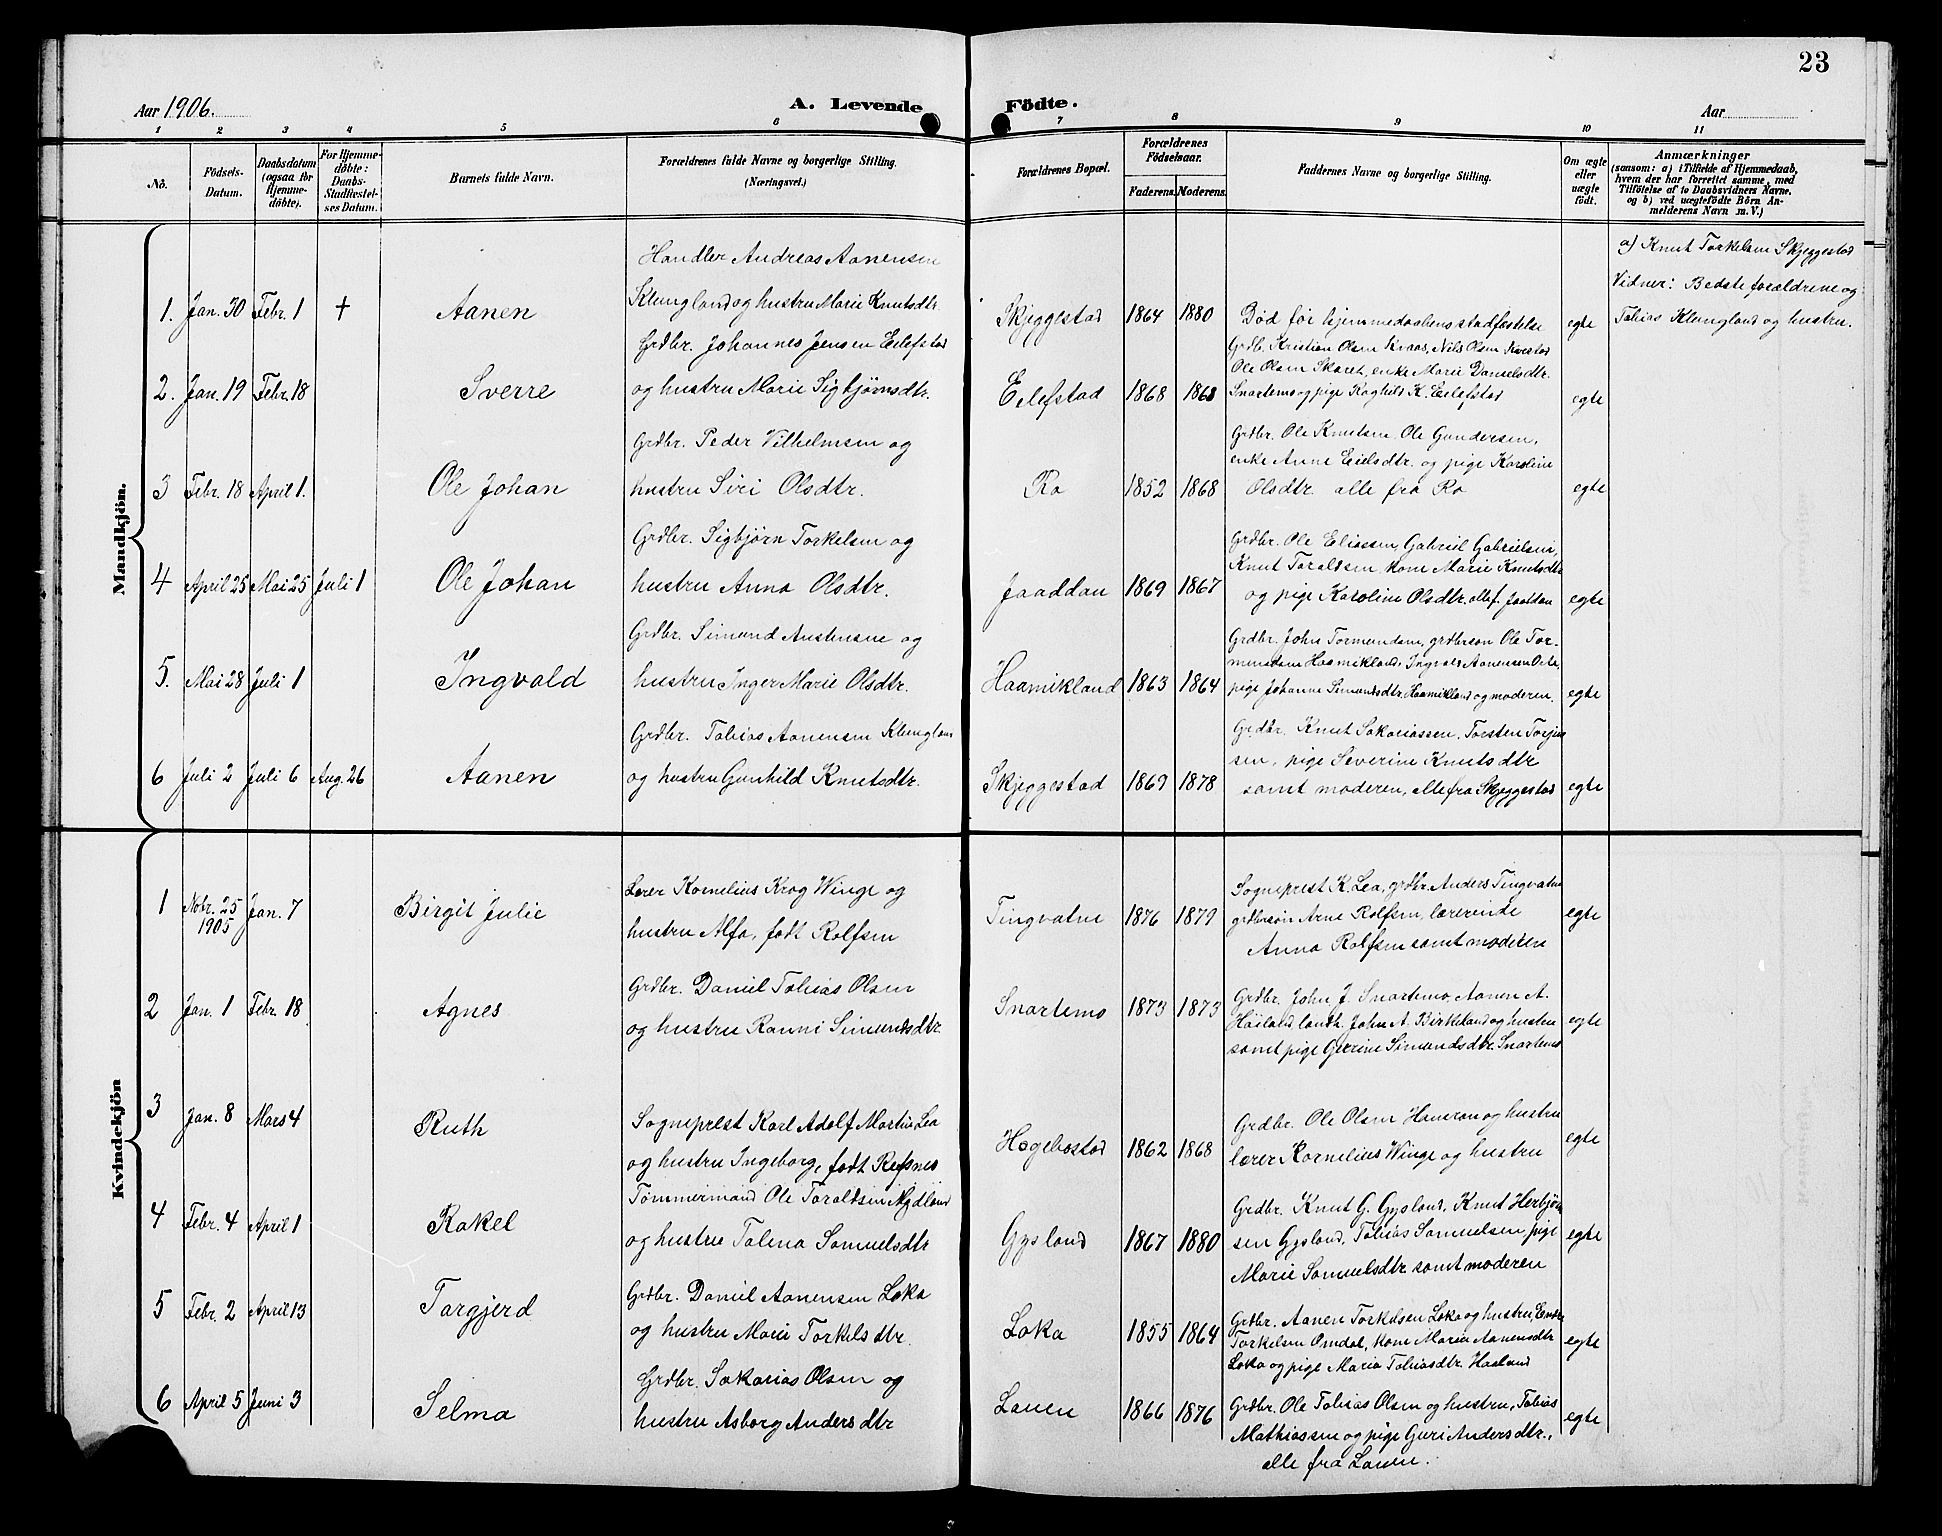 23
Aar 1906.
A. Levende Födte.
Aar
1 2 3 4 5 6 7 8 9 10 11
No.
Födsels-Datum.
Daabsdatum (ogsaa for Hjemme-döbte).
For Hjemme-döbte: Daabs-Stadfæstel-ses Datum.
Barnets fulde Navn.
Forældrenes fulde Navne og borgerlige Stilling. (Næringsvei.)
Forældrenes Bopæl.
Forældrenes Födselsaar.
Faderens. Moderens.
Faddernes Navne og borgerlige Stilling.
Om ægte eller uægte födt.
Anmærkninger
(saasom: a) i Tilfælde af Hjemmedaab, hvem der har forrettet samme, med Tilföielse af to Daabsvidners Navne, og b) ved uægtefödte Börn An-melderens Navn m. V.)
Mandkjön.
1. Jan. 30 Febr. 1 † Aanen
Handler Andreas Aanensen
Klungland og hustru Marie Knutsdtr.
Skjeggestad 1864 1880
Död før hjemmedaabens stadfæstelse
egte
a) Knut Torkelsen Skjeggestad
Vidner: Bedsteforældrene og
Tobias Klungland og hustru.
2. Jan. 19 Febr. 18 Sverre
Grdbr. Johannes Jensen Eilefstad
og hustru Marie Sigbjørnsdtr.
Eilefstad 1868 1868
Grdb. Kristian Olsen Kraas, Nils Olsen Kvestad
Ole Olsen Skaret, enke Marie Danielsdtr.
Snartemo og pige Raghild K. Eilefstad
egte
3 Febr. 18 April 1. Ole Johan
Grdbr. Peder Vilhelmsen og
hustru Siri Olsdtr.
Ro 1852 1868
Grdbr. Ole Knutsen, Ole Gundersen,
enke Anne Eielsdtr. og pige Karoline
Olsdtr. alle fra Ro
egte
4 April 25 Mai 25 Juli 1 Ole Johan
Grdbr. Sigbjørn Torkelsen og
hustru Anna Olsdtr.
Jaaddan 1869 1867
Grdbr. Ole Eliassen, Gabriel Gabrielsen,
Knut Toraldsen, kone Marie Knutsdtr
og pige Karoline Olsdtr. alle f. Jaaddan
egte
5. Mai 28 Juli 1 Ingvald
Grdbr. Simund Austensen og
hustru Inger Marie Olsdtr.
Haamikland 1863 1864
Grdbr. John Tormundsen, grdbrsøn Ole Tor-
mundsen Haamikland, Ingvald Aanensen
pige Johanne Simundsdtr. Haamikland og moderen.
egte
6 Juli 2 Juli 6 Aug. 26 Aanen
Grdbr. Tobias Aanensen Klungland
og hustru Gunhild Knutsdtr.
Skjeggestad 1869 1878
Grdbr. Knut Sakariassen, Torsten Torjus
sen, pige Severine Knutsdtr
samt moderen, alle fra Skjeggestad
egte
Kvindekjön
1 Nobr. 25 1905 Jan. 7 Birgit Julie
Lærer Kornelius Krog Winge og
hustru Alfa, født Rolfsen
Tingvatne 1876 1879
Sogneprest K. Lea, grdbr. Anders Tingvatne
grdbrsøn Arne Rolfsen, lærerinde
Anna Rolfsen samt moderen
egte
2 Jan. 1 Febr. 18 Agnes
Grdbr. Daniel Tobias Olsen
og hustru Ranni Simundsdtr.
Snartemo 1873 1873
Grdbr. John J. Snartemo, Aanen A.
Haaland landh. John A. Birkeland og hustru
samt pige Gurine Simundsdtr. Snartemo
egte
3 Jan. 8 Mars 4 Ruth
Sogneprest Karl Adolf Martin Lea
og hustru Ingeborg, født Refsnes
Hægebostad 1862 1868
Grdbr. Ole Olsen Haneran og hustru
lærer Kornelius Winge og hustru
egte
4 Febr. 4 April 1 Rakel
Tømmermand Ole Toraldsen Mydland
og hustru Talena Samuelsdtr
Gysland 1867 1880
Grdbr. Knut G. Gysland, Knut Herbjørn
sen Gysland, Tobias Samuelsen, pige
Marie Samuelsdtr samt moderen
egte
5 Febr. 2 April 13 Targjerd
Grdbr. Daniel Aanensen Loka
og hustru Marie Torkelsdtr.
Loka 1855 1864
Grdbr. Aanen Torkelsen Loka og hustru,
Torkelsen Omdal, kone Maria Aanensdtr
Loka og pige Maria Tobiasdtr. Haaland
egte
6 April 5 Juni 3 Selma
Grdbr. Sakarias Olsen og
hustru Asborg Andersdtr
Lauen 1866 1876
Grdbr. Ole Tobias Olsen og hustru, Tobias
Mathiassen og pige Guri Andersdtr.,
alle fra Lauen.
egte